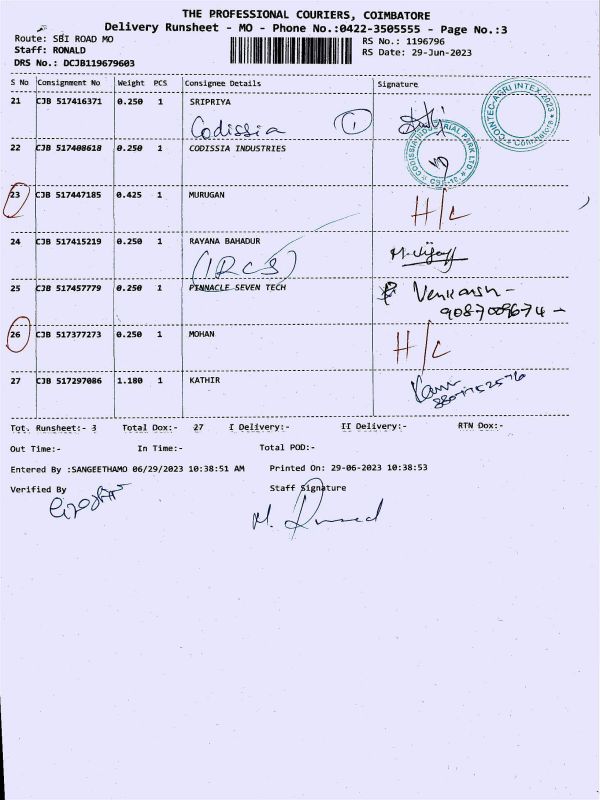 THE PROFESSIONAL COURIERS, COIMBATORE
Delivery Runsheet - MO - Phone No.:0422-3505555 - Page No.:3
Route: SBI ROAD MO
RS No.: 1196796
Staff: RONALD
RS Date: 29-Jun-2023
DRS No.: DCJB119679603
S No Consignment No Weight PCS Consignee Details Signature
21 CJB 517416371 0.250 1 SRIPRIYA
Codissia 1
CODISSIA INDUSTRIAL PARK LTD
INTEX 2023
Coimbatore
22 CJB 517408618 0.250 1 CODISSIA INDUSTRIES
23 CJB 517447185 0.425 1 MURUGAN
H/C
24 CJB 517415219 0.250 1 RAYANA BAHADUR
(IRCS)
25 CJB 517457779 0.250 1 PINNACLE SEVEN TECH
26 CJB 517377273 0.250 1 MOHAN
H/C
27 CJB 517297086 1.180 1 KATHIR
Tot. Runsheet:- 3 Total Dox:- 27 I Delivery:- II Delivery:- RTN Dox:-
Out Time:- In Time:- Total POD:-
Entered By :SANGEETHAMO 06/29/2023 10:38:51 AM Printed On: 29-06-2023 10:38:53
Verified By Staff Signature